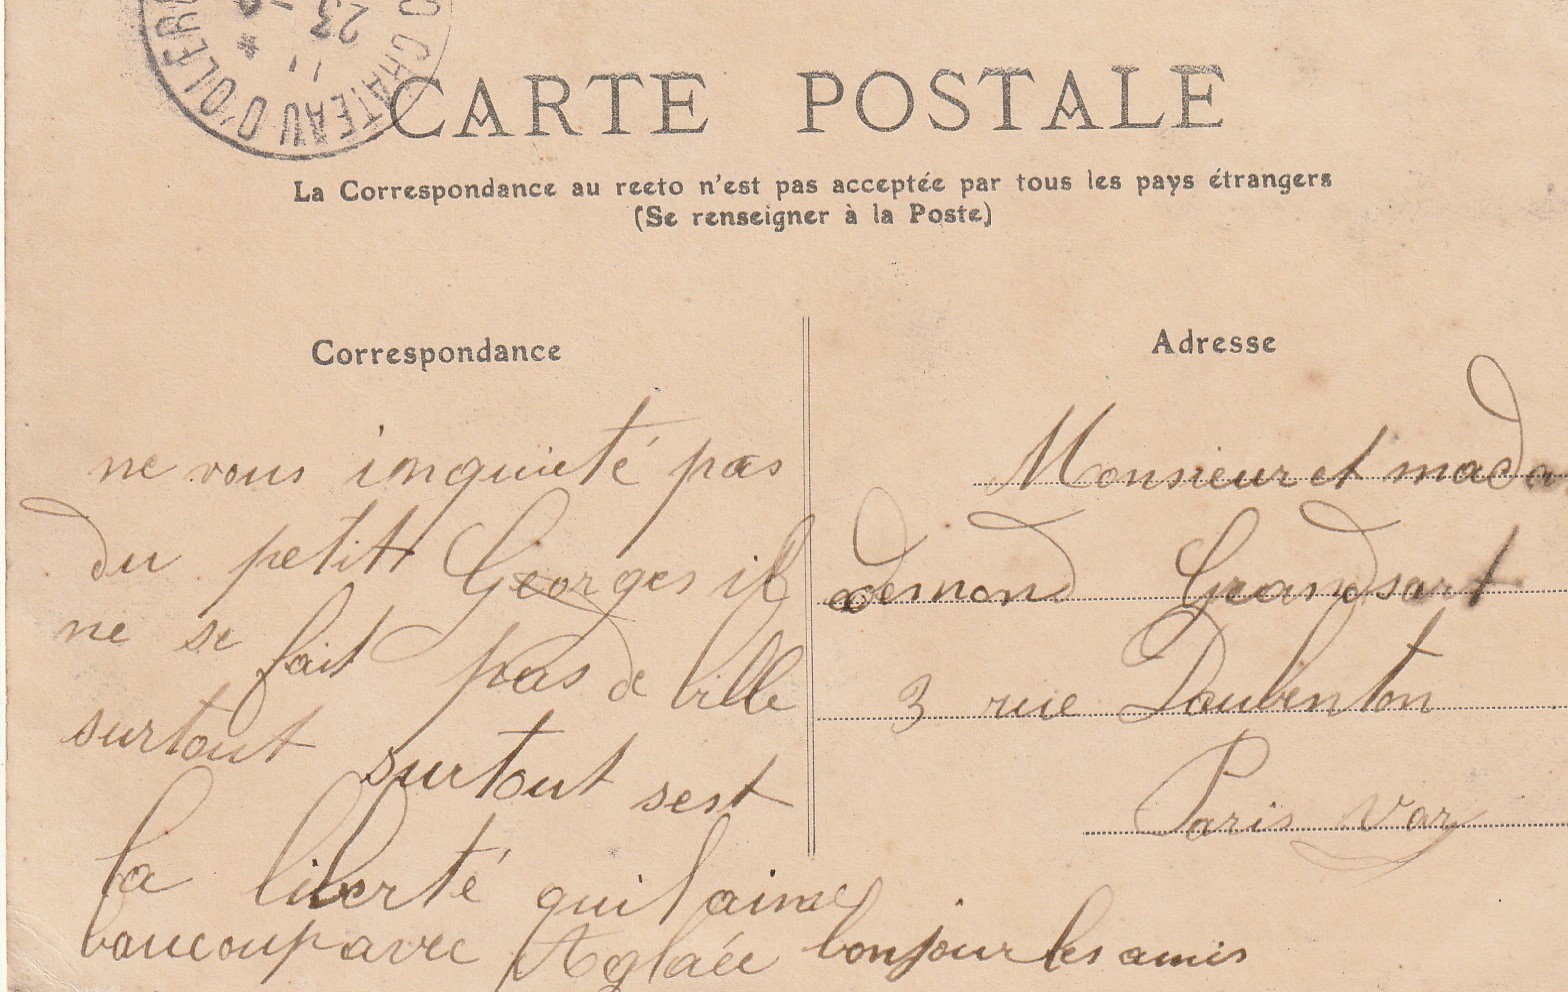 CHATEAU D'OLER
23
11
CARTE POSTALE
La Correspondance au recto n'est pas acceptée par tous les pays étrangers
(Se renseigner à la Poste)
Correspondance
ne vous inquieté pas
du petit Georges il
ne se fait pas de bille
surtout surtout sest
la liberté quil aime
baucoup avec Aglaée bonjour les amis
Adresse
Monsieur et mada
Grandsart
3 rue Daubenton
Paris